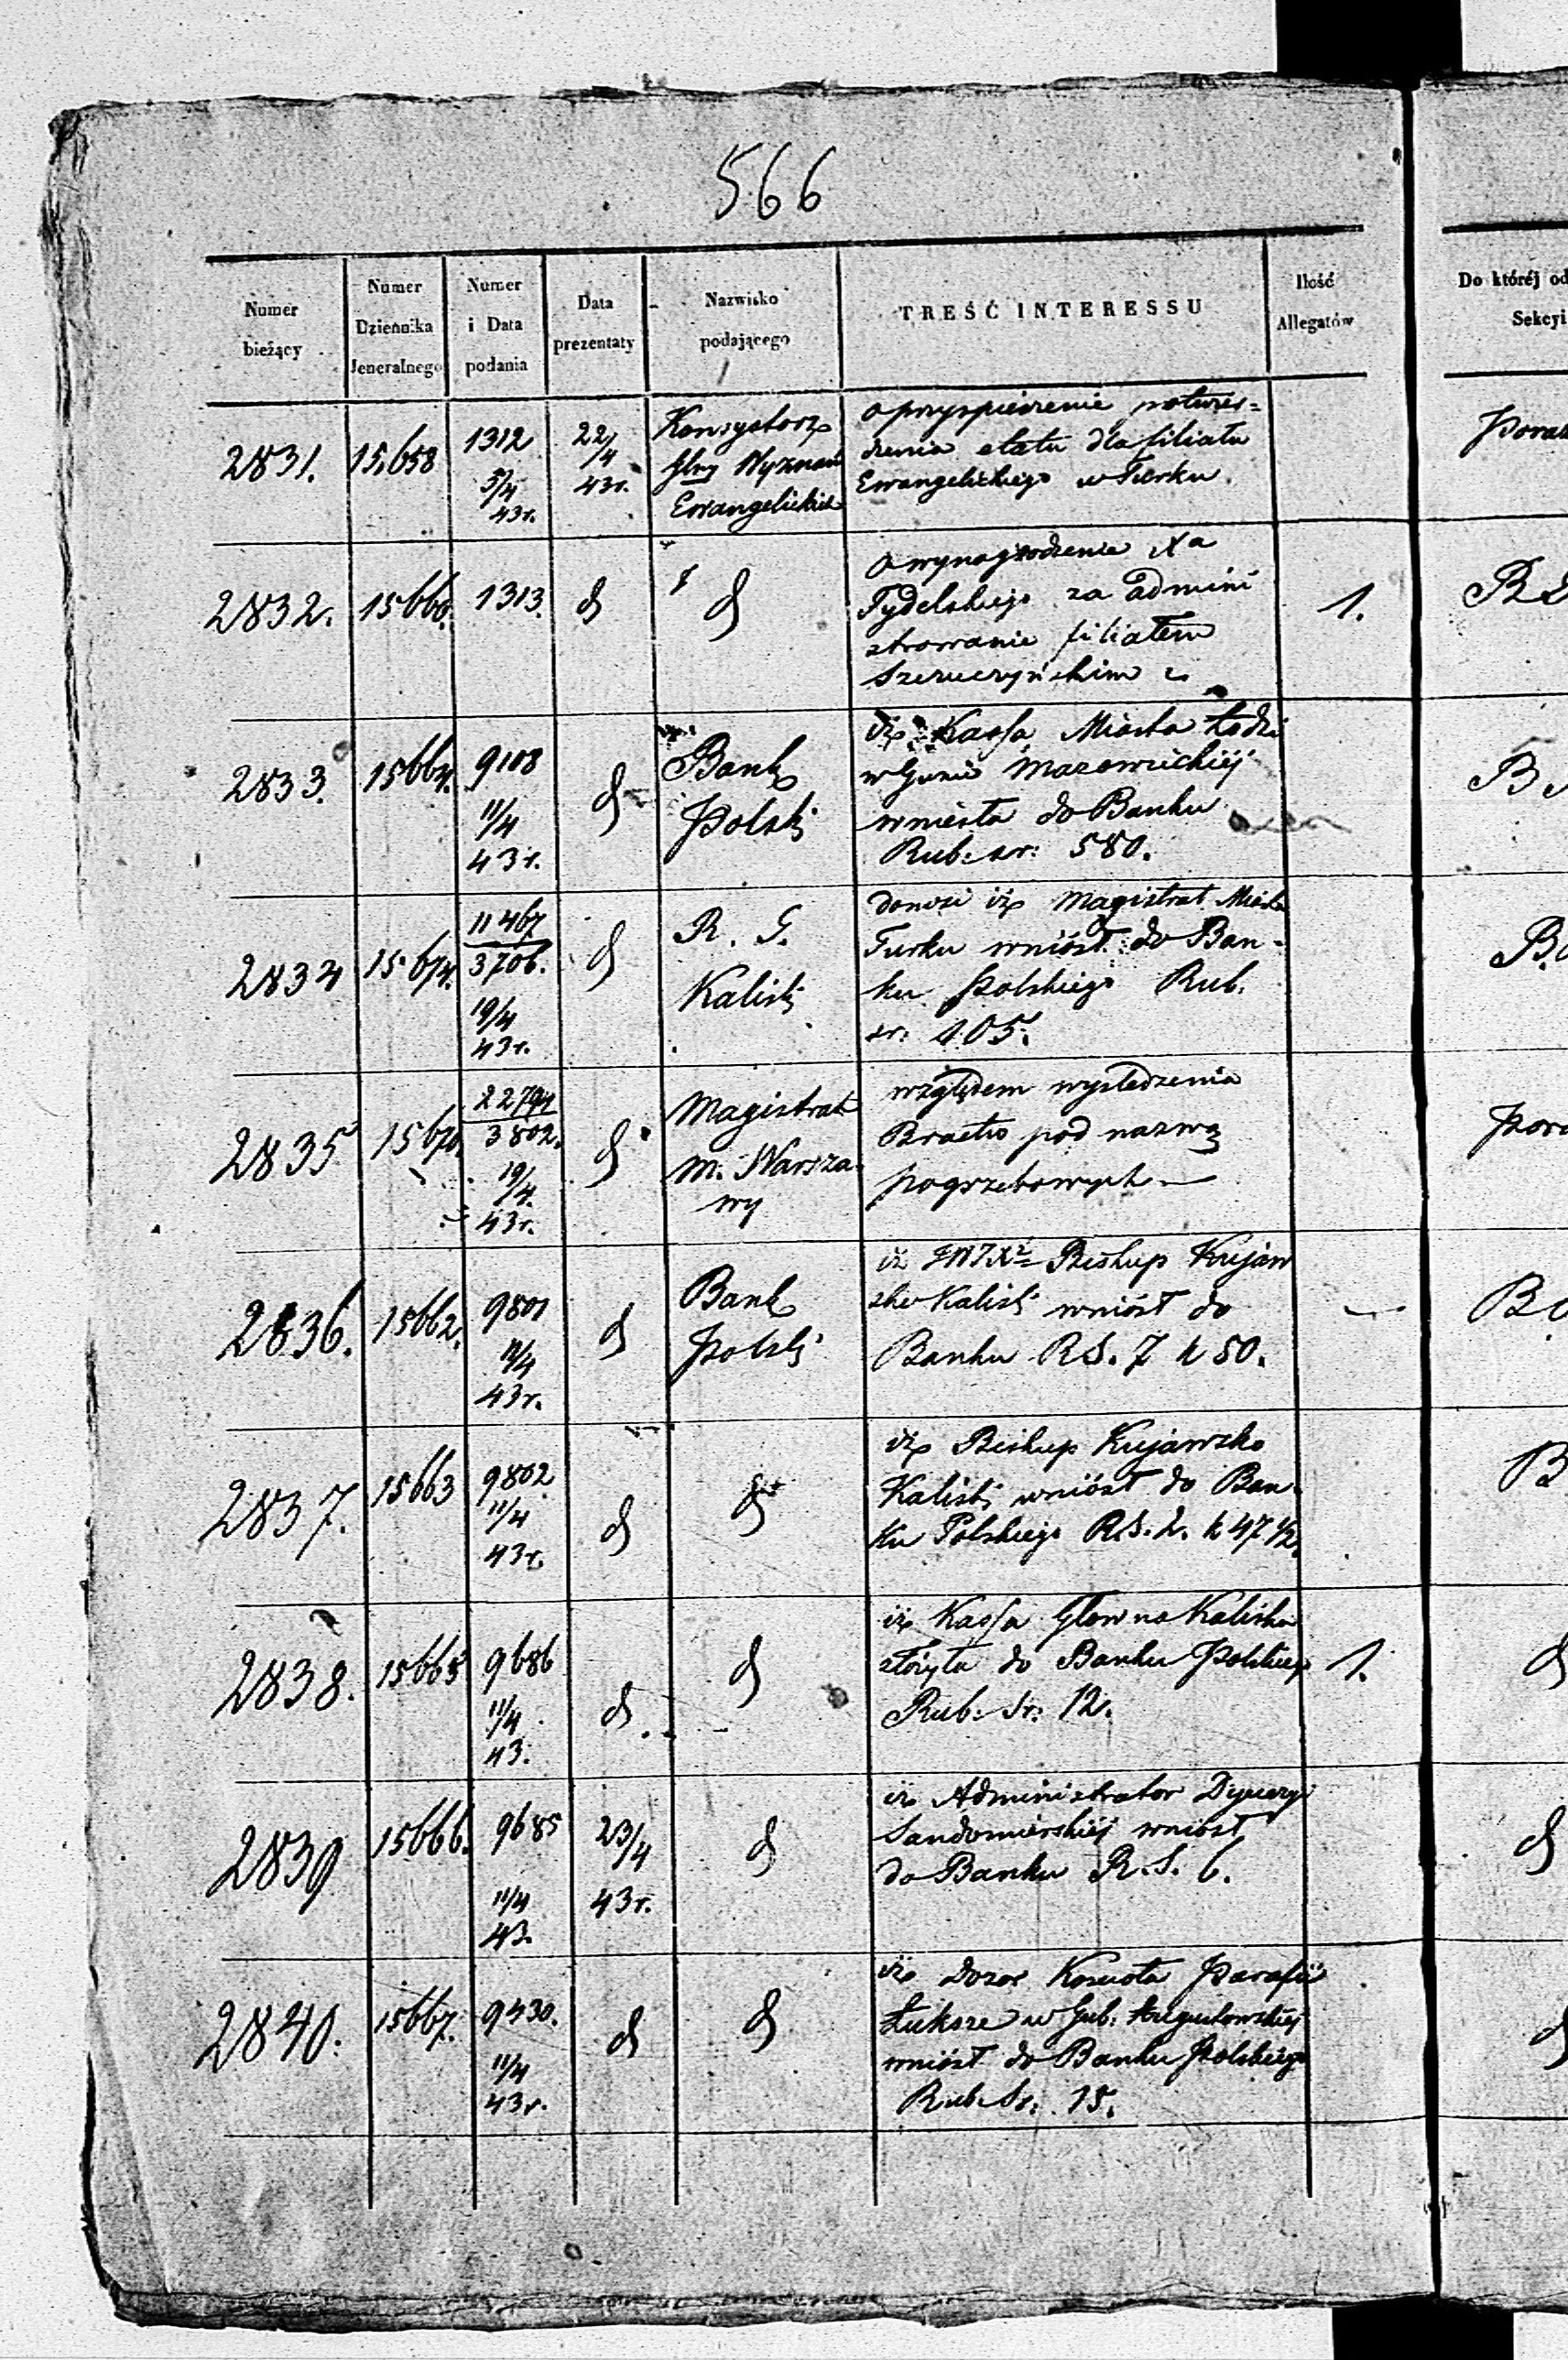 566
Numer
bieżący
Numer
Dziennika
Jeneralnego
Numer
i Data
podania
Data
prezentaty
Nazwisko
podającego
TREŚĆ INTERESSU
Ilość
Allegatów
Do której od
Sekcyi
2831.
15658
1312
5/4
43r.
22/4
43r.
Konsystorz
Głny Wyznań
Ewangelickich
o przyspieszenie potwier=
dzenia etatu dla filiału
Ewangelickiego w Turku.
2832.
15660.
1313.
d
d
o wynagrodzenie Xa
Tydelskiego za admini
strowanie filiałem
1.
2833.
15664.
9108
11/4
43r.
d
Bank
Polski
iż Kassa Miasta Łodzi
w Gunii Mazowieckiéj
wniosła do Banku
Rub: sr: 580.
2834
15674.
11467
3706.
19/4
43r.
d
R. G.
Kalisk
donosi iż Magistrat Miasta
Turku wniósł do Ban-
ku Polskiego Rub.
sr: 105.
2835
15670.
22794
3802.
19/4.
43r.
d
Magistrat
m. Warsza-
wy
względem wyśledzenia
Bractw pod nazwą
pogrzebowych
2836.
15662.
9801
11/4
43r.
d
Bank
Polski
iż JWJX Biskup Kujaw
sko Kaliski wniósł do
Banku RS. 7 k 50.
2837.
15663
9802
11/4
43r.
d
d
iż Biskup Kujawsko
Kaliski wniósł do Ban-
ku Polskiego R.S. 2. k 47 1/2.
2838.
15665
9686
11/4
43.
d.
d
iż Kassa Główna Kaliska
złożyła do Banku Polskiego
Rub: Sr: 12.
1.
d
2839
15666.
9685
11/4
43.
23/4
43r.
d
iż Administrator Dyecezyi
Sandomierskiéj wniósł
do Banku R.S. 6.
d
2840.
15667.
9430.
11/4
43r.
d
d
iż dozór Kościoła Parafii
Łuksze w Gub. Augustowskiej
wniósł do Banku Polskiego
Rub: Sr: 15.
d